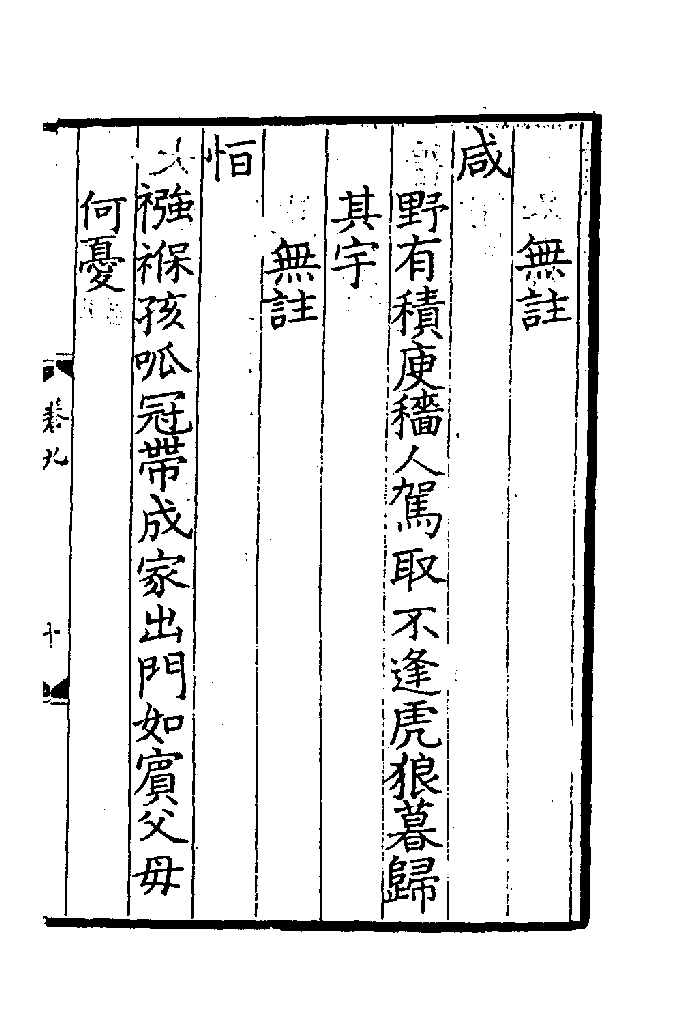 無註
咸
野有積庾穡人駕取不逢虎狼暮歸
其宇
無註
恒
襁褓孩呱冠帶成家出門如賓父母
何憂
卷九
十